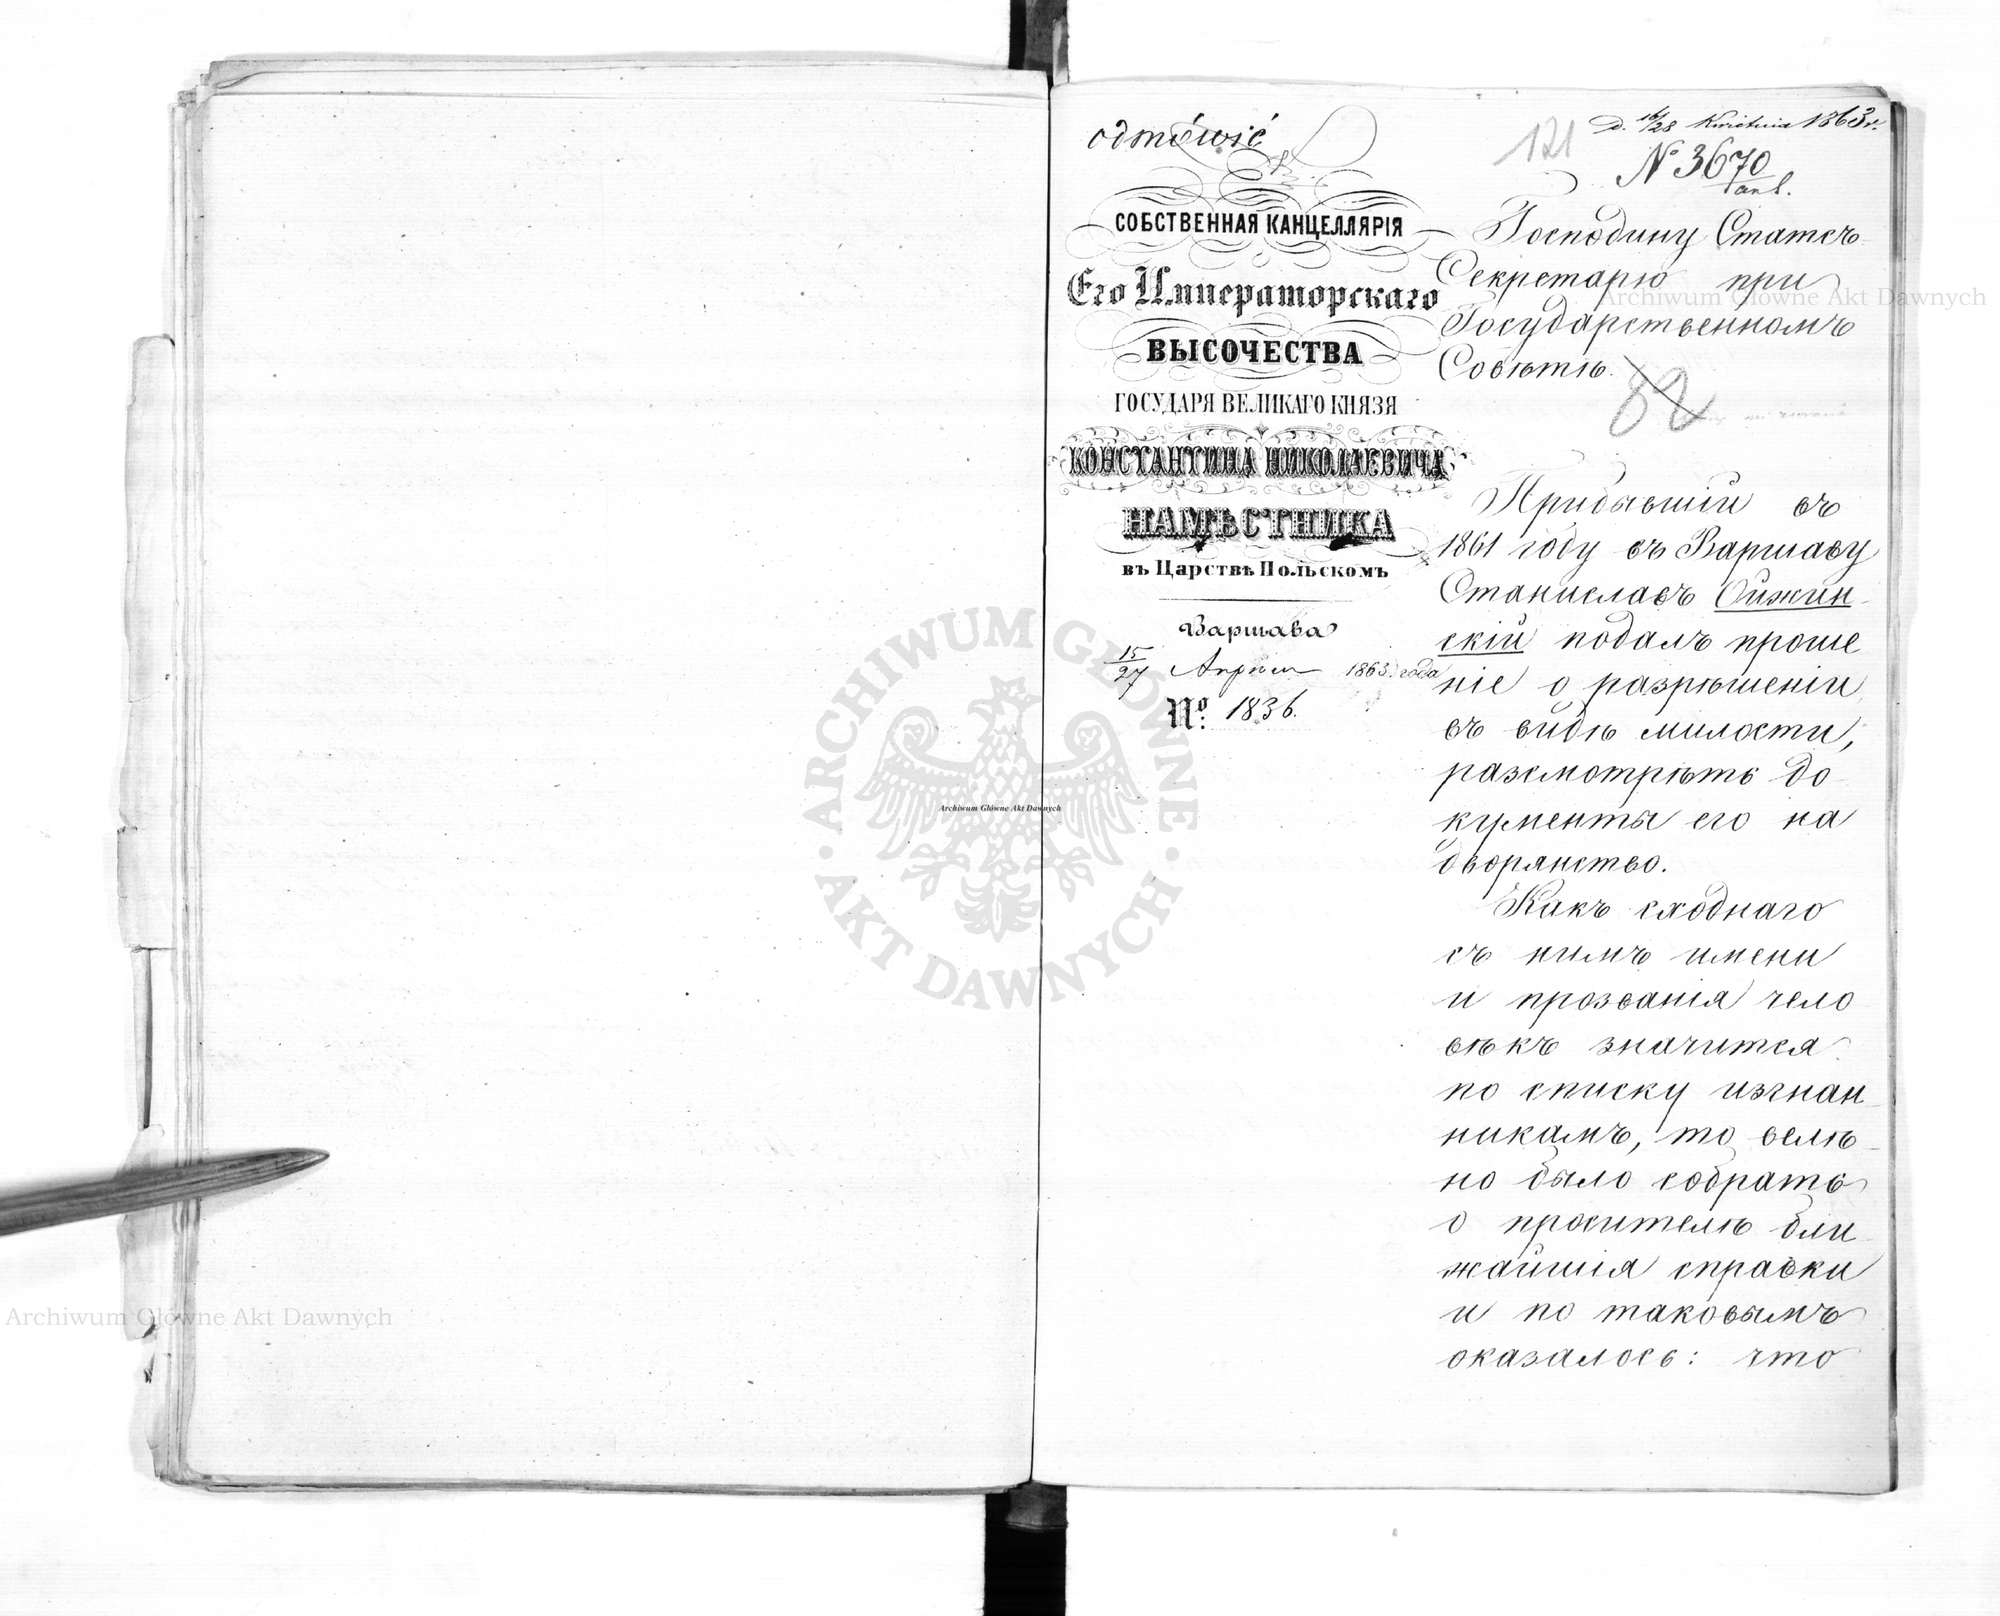 odmówić
D. 16/28 Kwietnia 1863 r.
121
№ 3670
СОБСТВЕННАЯ КАНЦЕЛЛЯРІЯ
Его Императорскаго
ВЫСОЧЕСТВА
ГОСУДАРЯ ВЕЛИКАГО КНЯЗЯ
КОНСТАНТИНА НИКОЛАЕВИЧА
НАМѢСТНИКА
въ Царствѣ Польскомъ
Варшава
15/27 Апрѣля 1863 года
№ 1836.
Господину Статсъ
Секретарю при
Государственномъ
Совѣтѣ.
82
Прибывшій въ
1861 году въ Варшаву
Станиславъ Ойжин-
скій подалъ проше
ніе о разрѣшеніи,
въ видѣ милости,
разсмотрѣть до
кументы его на
дворянство.
Какъ сходнаго
съ нимъ имени
и прозванія чело
вѣкъ значится
по списку изгнан-
никамъ, то велѣ-
но было собрать
о просителѣ бли
жайшія справки
и по таковымъ
оказалось: что
ARCHIWUM GŁÓWNE AKT DAWNYCH
Archiwum Główne Akt Dawnych
Archiwum Główne Akt Dawnych
Archiwum Główne Akt Dawnych